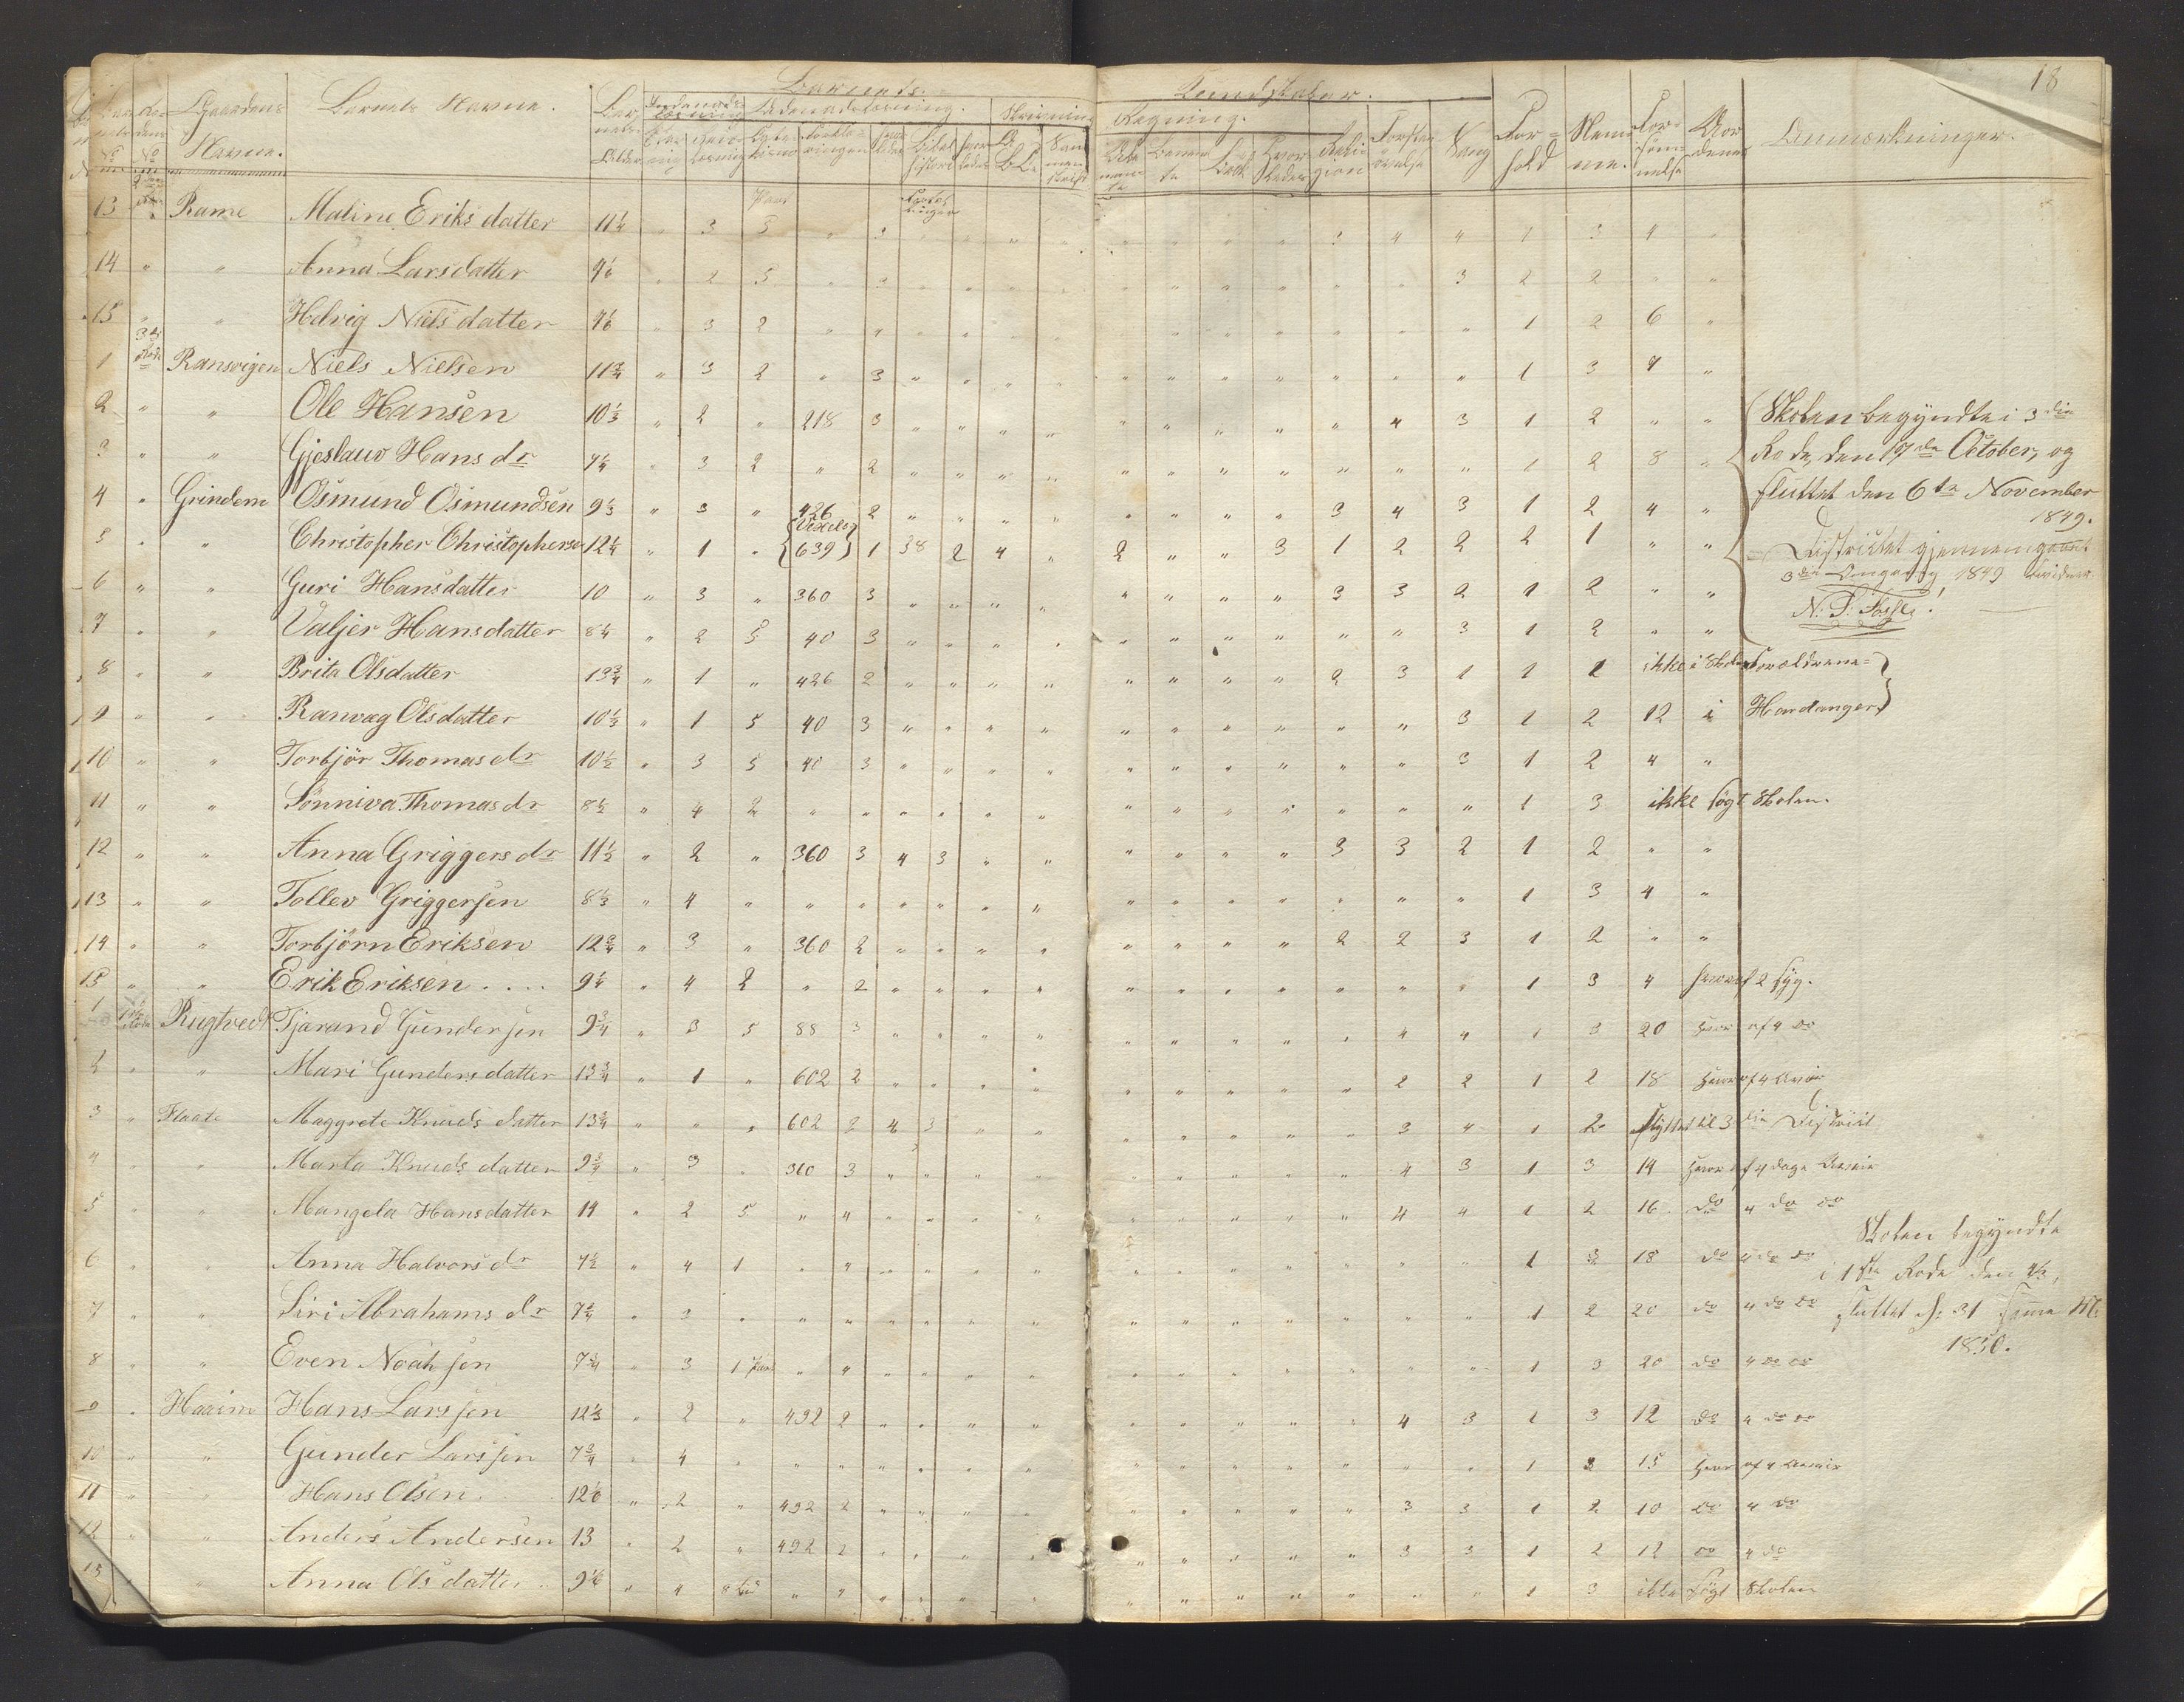 18
Barnets
Kundskaber.
Gaardens Navne.
Barnets Navne.
Barnets Alder
Udenadslæsning.
Skrivning
Regning.
Religion
Sang
Forhold
Nemme.
Forsømmelse
Anmærkninger.
13 Rame Maline Eriksdatter 11¼ " 3 5 " 3 3 4 4 1 3 4 "
14 " " Anna Larsdatter 2 5 " 3 3 2 2 " "
15 " " Helvig Nielsdatter " 3 2 " 4 1 2 6 "
1 3die Rode Ransvigen Niels Nielsen 11¾ " 3 2 " 3 " " 1 3 4 "
2 " " Ole Hansen 10⅓ " 2 " 218 3 " " 4 3 1 2 " "
3 " " Gjeslauv Hansdr 7¼ " 3 2 " 2 " " 1 2 8 "
4 " Grindem Osmund Osmundsen 9⅓ " 3 " 426 2 " " 3 4 3 1 2 4 "
5 " " Christopher Christophersen 12¼ " 1 " 639 1 38 2 4 " 2 " " 3 1 2 2 2 1 " "
6 " " Guri Hansdatter 10 " 3 " 360 3 " " 3 3 2 1 2 " "
7 " " Valjer Hansdatter 8¼ " 2 5 40 3 " " 3 1 2 " "
8 " " Brita Olsdatter 13¾ " 1 " 426 2 " " 2 3 1 1 1 ikke i Skolen Forældrene
9 " " Ranvag Olsdatter 10⅓ " 1 5 40 3 " " 3 1 2 12 i Hardanger
10 " " Torbjör Thomasdr 10½ " 3 5 40 3 " " 3 1 2 4 "
11 " " Sönniva Thomasdr 8½ " 4 2 " " 1 3 ikke søgt Skolen.
12 " " Anna Griggersdr 11½ " 2 " 360 3 4 3 " " 3 3 2 1 2 " "
13 " " Tollev Griggersen 8⅓ " 4 " " 1 3 4 "
14 " " Torbjörn Eriksen 12¾ " 3 " 360 2 " " 2 2 3 1 2 " "
15 " " Erik Eriksen . . . . 9¼ " 4 2 " 2 " " 1 3 4 hvoraf 2 syg.
1 1ste Rode Rugtvedt Tjarand Gundersen 9¾ " 3 5 88 3 " " 4 4 1 3 20 hvoraf 4 do
2 " " Mari Gundersdatter 13¾ " 1 " 602 2 " " 2 2 1 2 18 hvoraf 4
3 " Flaate Maggrete Knudsdatter 13¾ " " " 602 2 4 3 " " 3 4 1 2 flyttet til 3die District
4 " " Marta Knudsdatter 9¾ " 3 " 360 3 " " 4 3 1 3 14 hvoraf 4 dage
5 " " Mangela Hansdatter 14 " 2 5 " 4 " " 4 4 1 2 16 do 4 do do
6 " " Anna Halvorsdr 7½ " 4 1 " 4 " " 1 3 18 do 4 do do
7 " " Siri Abrahamsdr 7¾ " 3 " " 1 2 20 do 4 do do
8 " " Even Noahsen 7¾ " 3 1 Part " 4 " " 1 3 20 do 4 do do
9 " Haaim Hans Larssen 12⅓ " 2 " 492 2 " " 4 3 1 3 12 do 4 do do
10 " " Gunder Larssen 7¾ " 4 " " 1 3 15 hvoraf 4
11 " " Hans Olsen 12⅙ " 2 " 492 2 " " 3 3 1 2 10 do 4 do
12 " " Anders Andersen 13 " 2 " 492 2 " " 3 3 1 2 12 do 4 do
13 " Anna Olsdatter 9⅙ " 4 " 4 " " 1 3 ikke søgt Skolen
Skolen begyndte i 3die
Rode, den 17de October, og
sluttet den 6te November
1849.
Districtet gjennemgaaet
3die Omgang 1849
Skolen begyndte
i 1ste Rode den
sluttet d: 31 samme M:
1850.